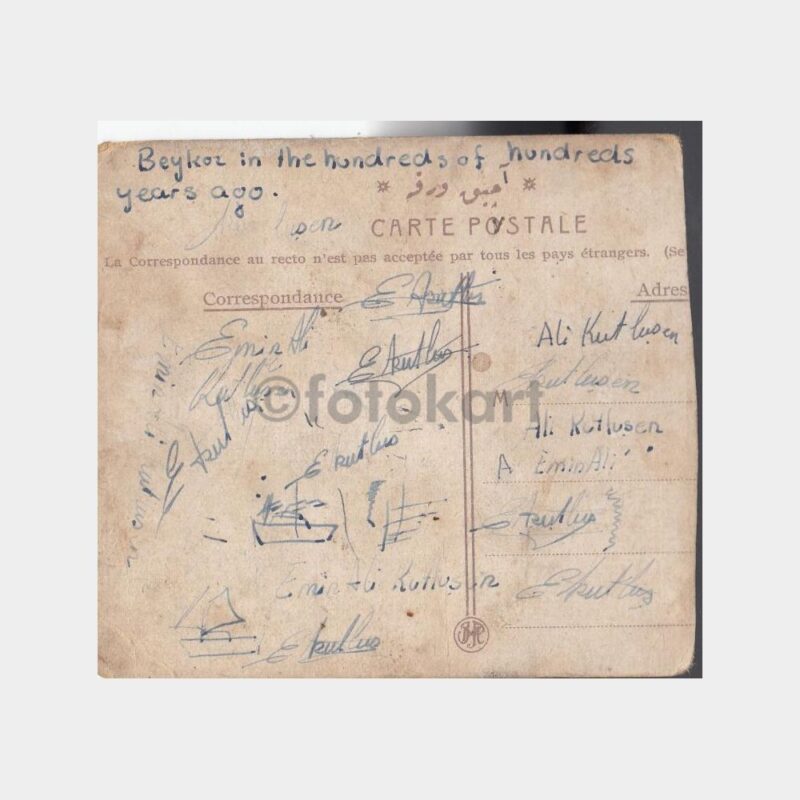 Beykoz in the hundreds of hundreds
years ago.
آچیق ورقه
CARTE POSTALE
La Correspondance au recto n'est pas acceptée par tous les pays étrangers. (Se
Correspondance
Adres
Emin Ali
Kutlusen
E kutlus
E kutlus
E kutlus
Emin Ali Kutlusen
E kutlus
Ali Kutlusen
M
Kutlusen
Ali Kutlusen
A EminAli
E kutlus
E kutlus
©fotokart